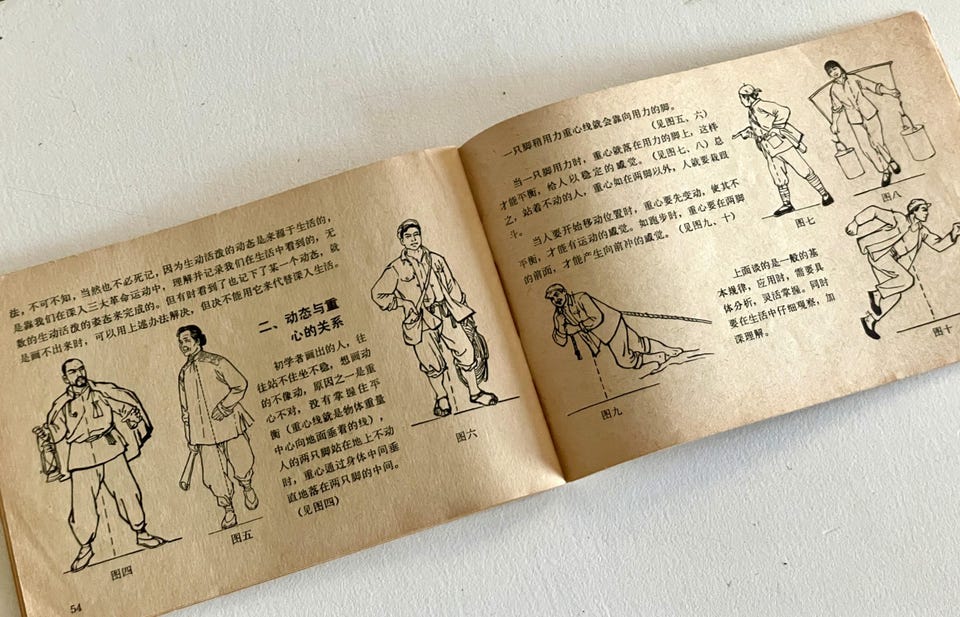 不可不知，当然也不必死记，因为生动活泼的动态是来源于生活的，
法，是靠我们在深入三大革命运动中，理解并记录我们在生活中看到的，无
数的生动活泼的姿态来完成的。但有时看到了也记下了某一个动态，就
是画不出来时，可以用上述办法解决，但决不能用它来代替深入生活。
二、动态与重
心的关系
初学者画出的人，往
往站不住坐不稳，想画动
的不像动，原因之一是重
心不对，没有掌握住平
衡（重心线就是物体重量
中心向地面垂看的线），
人的两只脚站在地上不动
时，重心通过身体中间垂
直地落在两只脚的中间。
（见图四）
图四
图五
图六
54
一只脚稍用力重心线就会靠向用力的脚。
（见图五、六）
当一只脚用力时，重心就落在用力的脚上，这样
才能平衡，给人以稳定的感觉。（见图七、八）总
之，站着不动的人，重心如在两脚以外，人就要栽跟
斗。
当人要开始移动位置时，重心要先变动，使其不
平衡，才能有运动的感觉。如跑步时，重心要在两脚
的前面，才能产生向前冲的感觉。（见图九、十）
图七
图八
上面谈的是一般的基
本规律，应用时，需要具
体分析，灵活掌握。同时
要在生活中仔细观察，加
深理解。
图九
图十